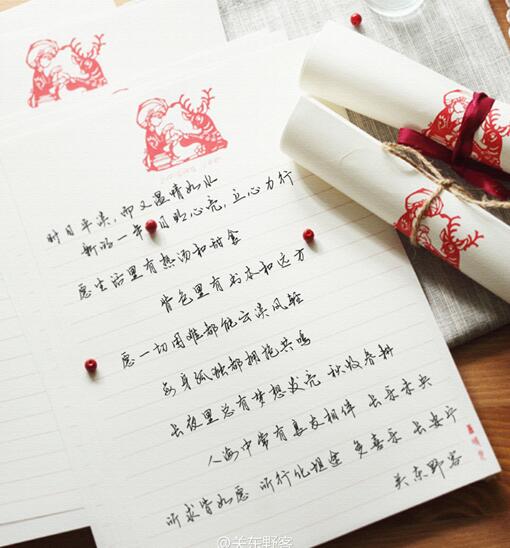 时日平淡，而又温情如水
新的一年 日 心亮，立心力行
愿生活里有热汤和甜食
背包里有书本和远方
愿一切困难都能云淡风轻
每身孤独都拥抱共鸣
长夜里总有梦想发亮 秋收春耕
人海中常有良友相伴 长乐未央
所求皆如愿 所行化坦途 多喜乐 长安宁
关东野客
@关东野客